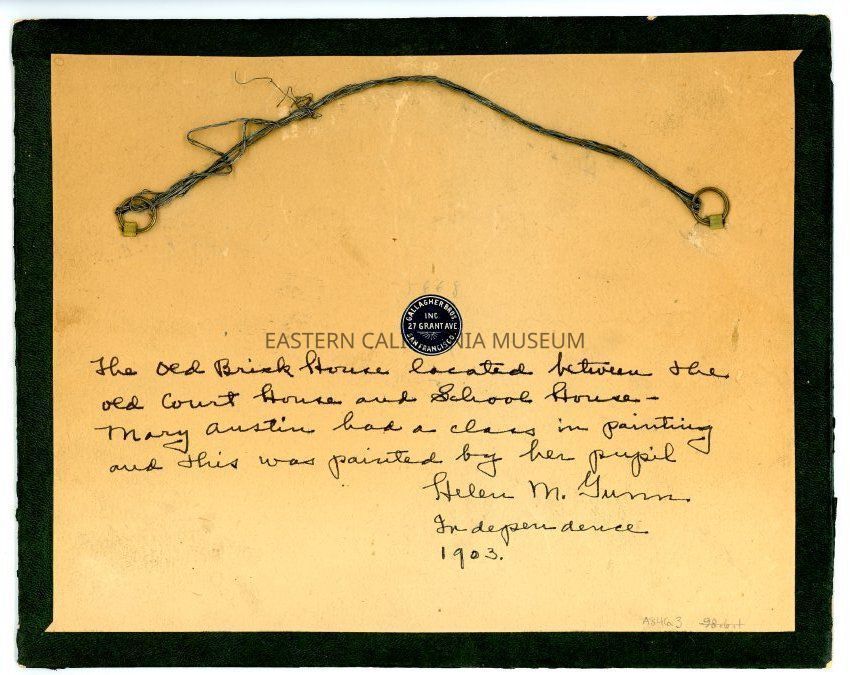 GALLAGHER BROS
INC.
27 GRANT AVE
SAN FRANCISCO
EASTERN CALIFORNIA MUSEUM
The old Brick House located between the
old Court House and School House -
Mary Austin had a class in painting
and this was painted by her pupil
Helen M. Gunn
Independence
1903.
A8463